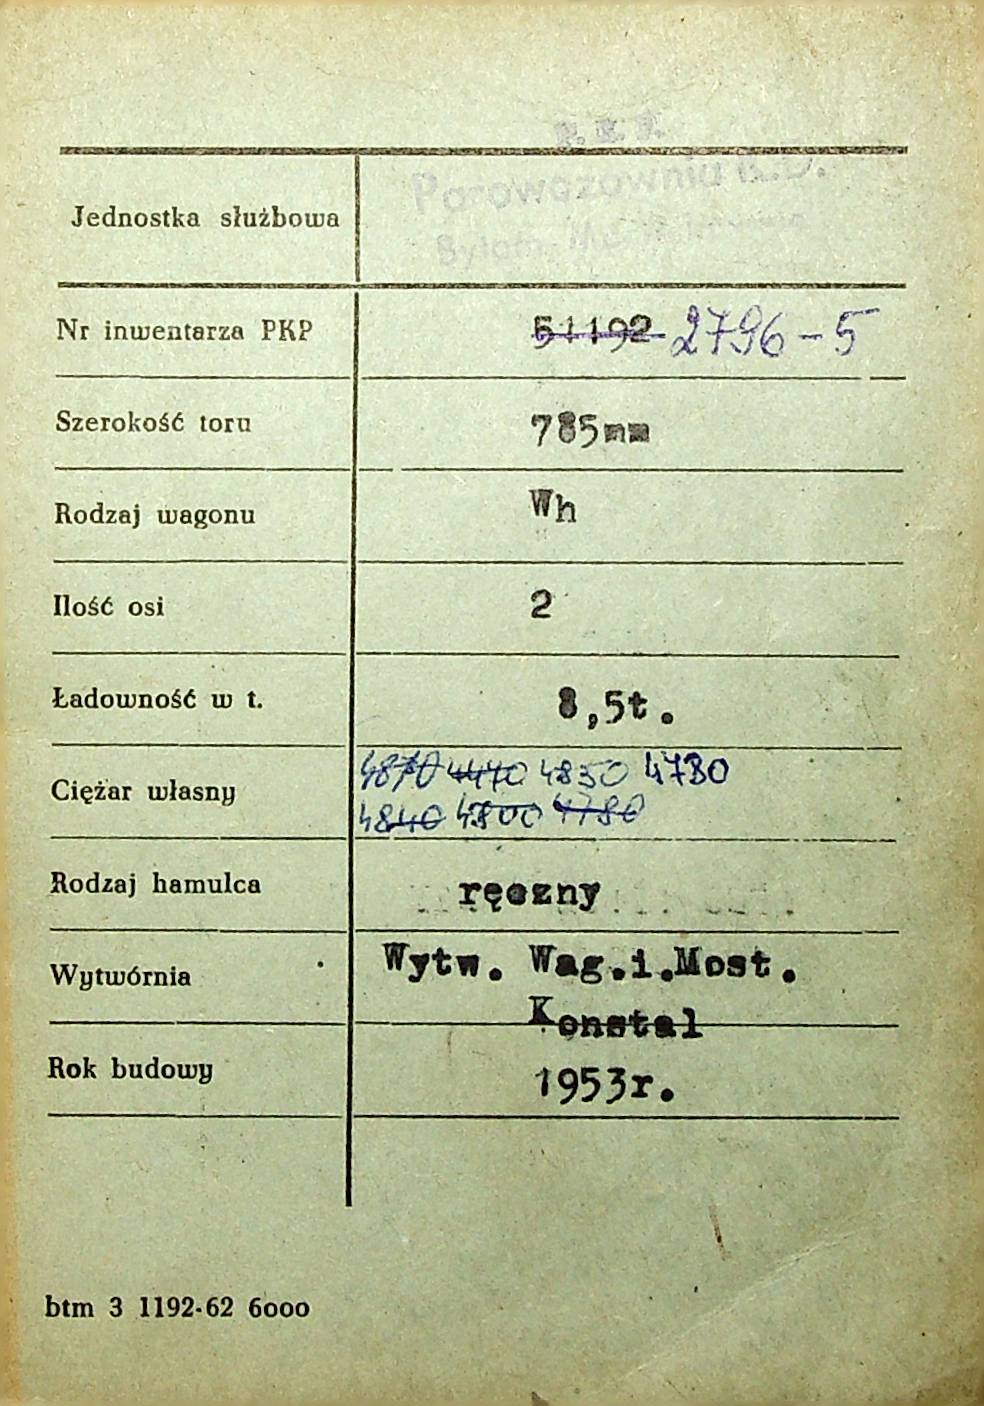 P. K. P.
Parowozownia K.D.
Jednostka służbowa
Bytom
Nr inwentarza PKP 51192 2796-5
Szerokość toru 785mm
Rodzaj wagonu Wh
Ilość osi 2
Ładowność w t. 8,5t.
4870 4440 4850 4780
Ciężar własny
4840 4800 4780
Rodzaj hamulca ręczny
Wytwórnia Wytw. Wag.i.Most.
Konstal
Rok budowy 1953r.
btm 3 1192-62 6000